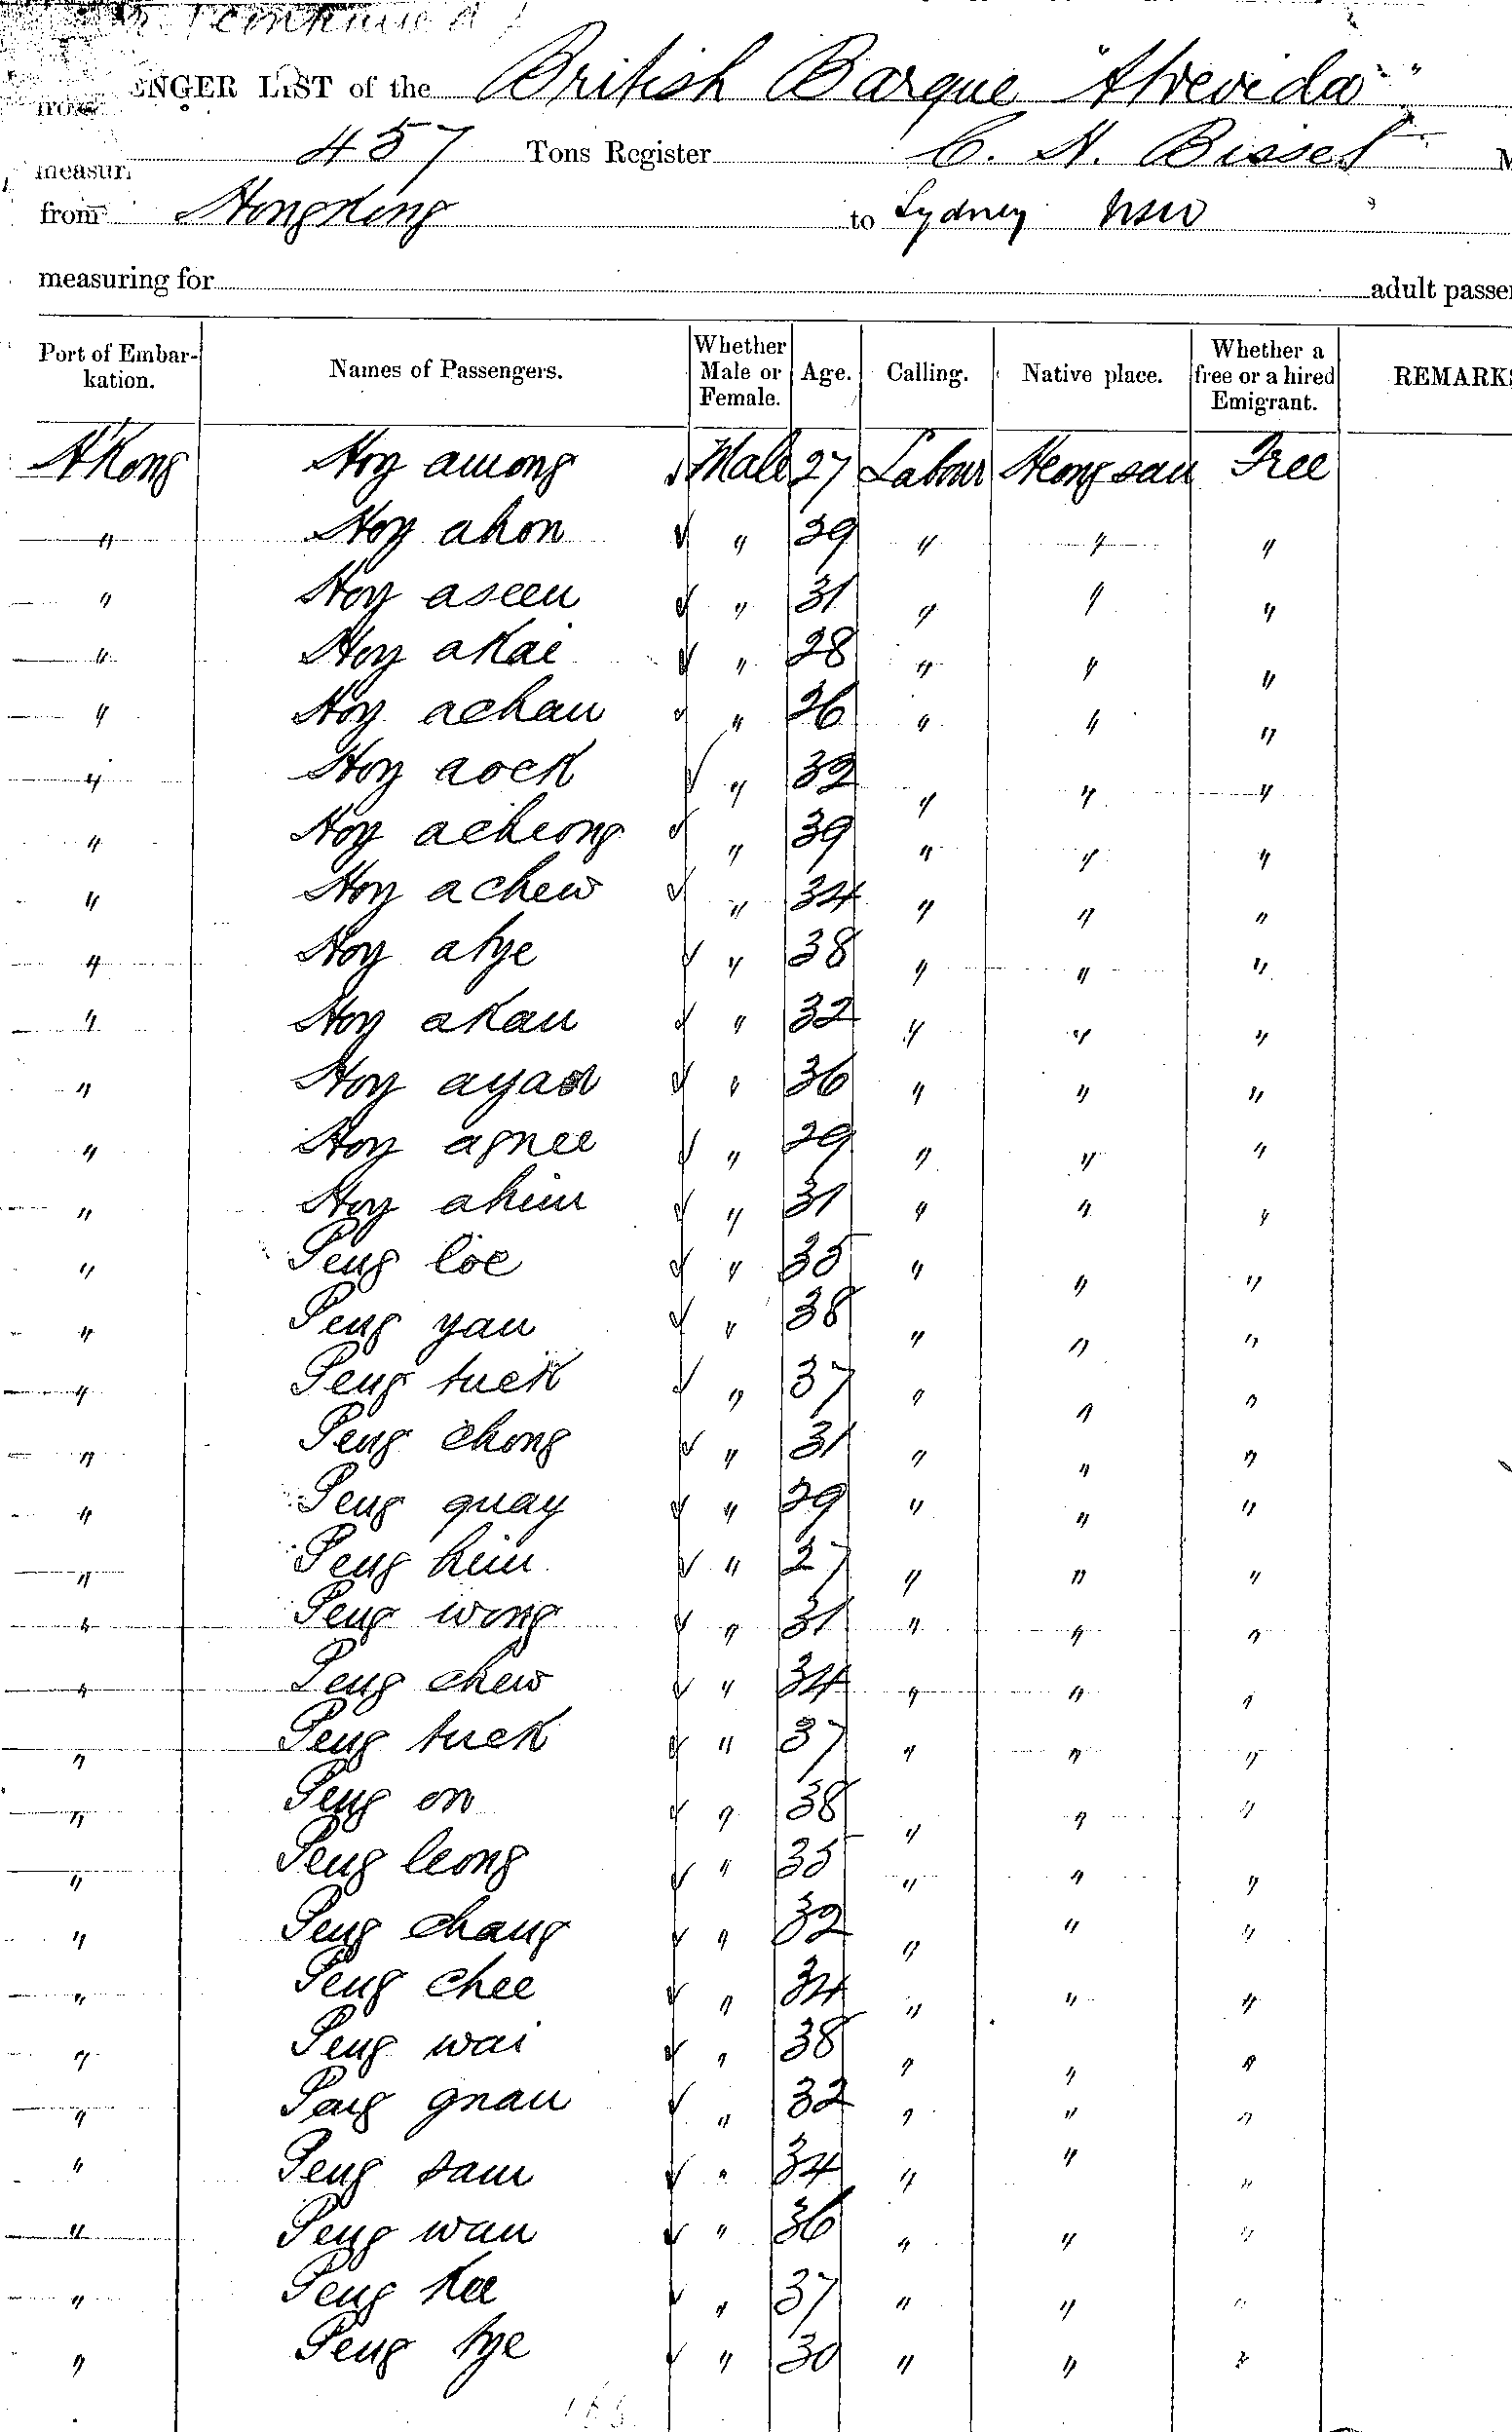 (continued)
ENGER LIST of the British Barque "Atrevida"
measur 457 Tons Register C. H. Bisset M
from HongKong to Sydney NSW
measuring for adult passen
Port of Embarkation. Names of Passengers. Whether Male or Female. Age. Calling. Native place. Whether a free or a hired Emigrant. REMARKS
HKong Hoy among Male 27 Labour Heong san Free
" Hoy ahon " 29 " " "
" Hoy aseen " 31 " " "
" Hoy akai " 28 " " "
" Hoy achau " 26 " " "
" Hoy aock " 32 " " "
" Hoy acheong " 39 " " "
" Hoy achew " 34 " " "
" Hoy atye " 38 " " "
" Hoy akau " 32 " " "
" Hoy " 36 " " "
" Hoy agnee " 29 " " "
" Hoy ahim " 31 " " "
" Peng loe " 35 " " "
" Peng yau " 38 " " "
" Peng tuck " 37 " " "
" Peng chong " 31 " " "
" Peng quay " 29 " " "
" Peng him " 27 " " "
" Peng wong " 31 " " "
" Peng chew " 34 " " "
" Peng tuck " 37 " " "
" Peng on " 38 " " "
" Peng leong " 35 " " "
" Peng chang " 32 " " "
" Peng chee " 34 " " "
" Peng wai " 38 " " "
" Peng gnau " 32 " " "
" Peng sam " 34 " " "
" Peng wan " 36 " " "
" Peng Kee " 37 " " "
" Peng tye " 30 " " "